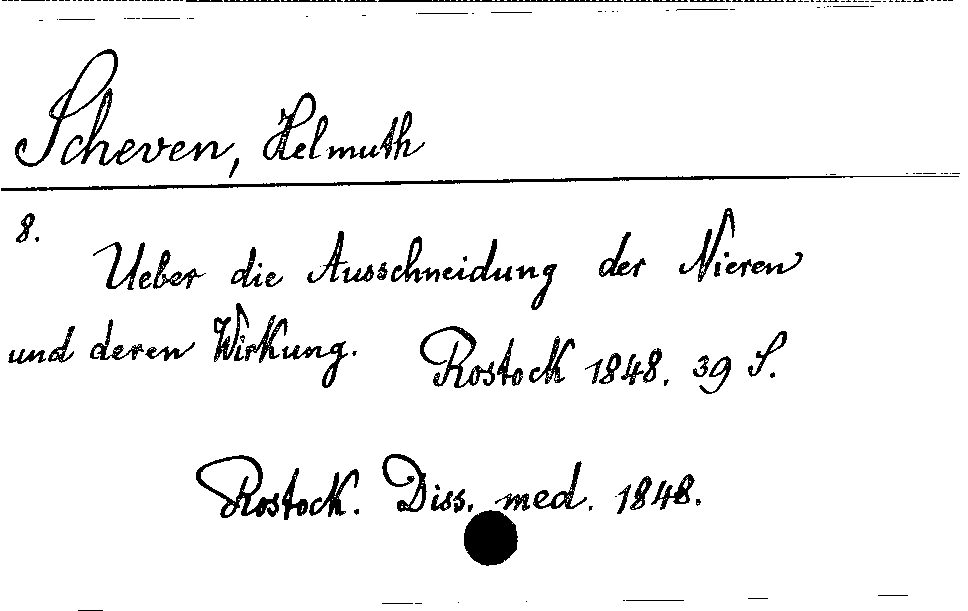 Scheven, Helmuth
8.
Ueber die Ausschneidung der Nieren
und deren Wirkung. Rostock 1848. 39 S.
Rostock. Diss. med. 1848.